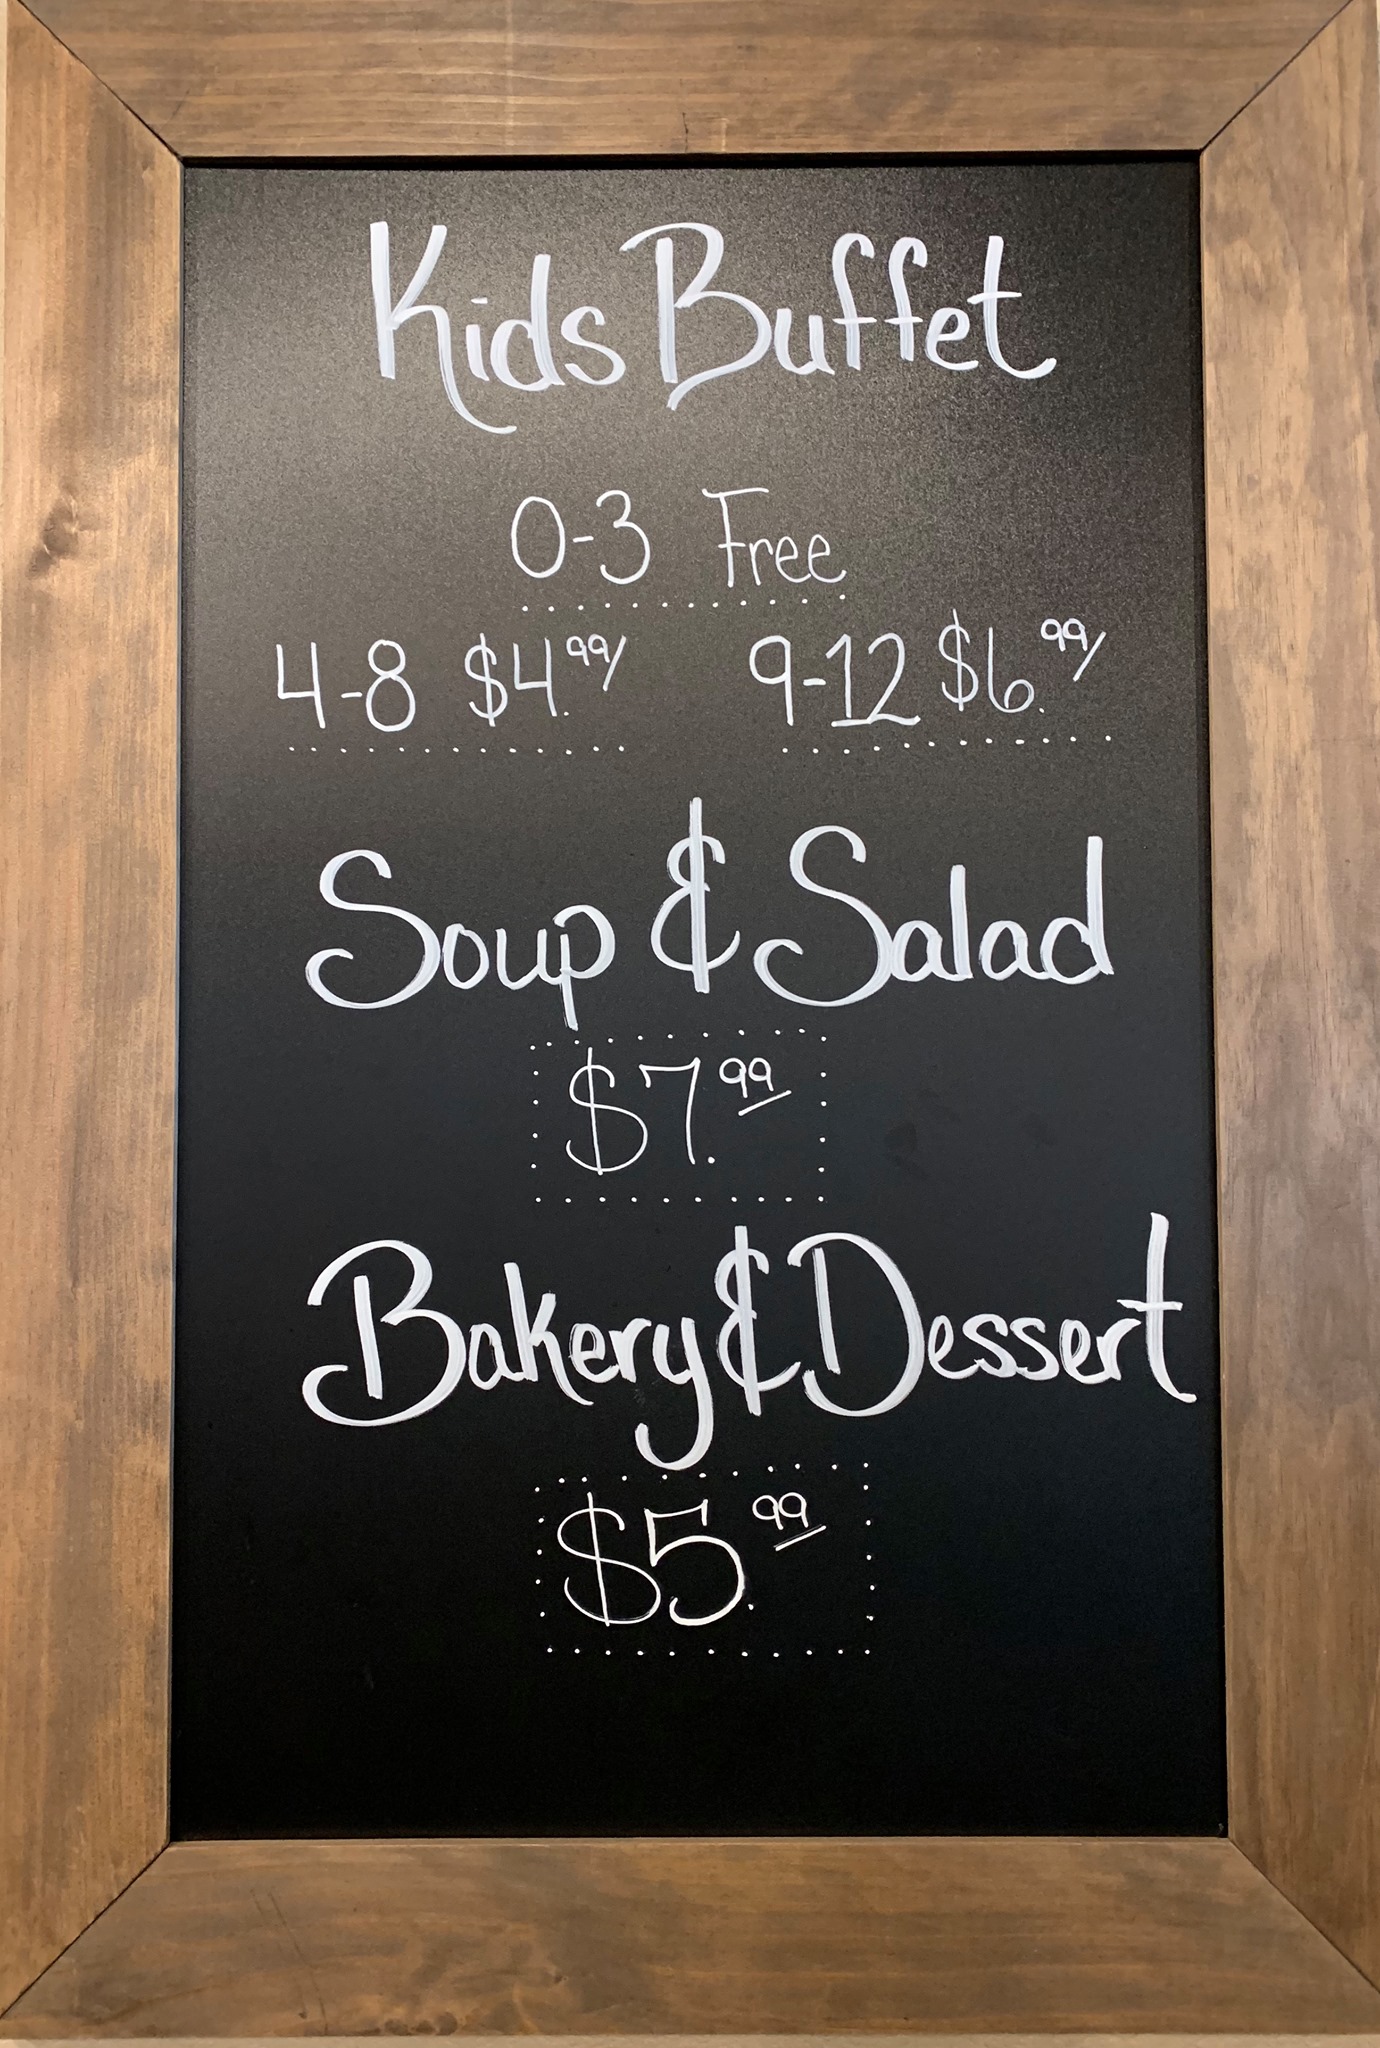 Kids Buffet
0-3 Free
4-8 $4.99/ 9-12 $6.99/
Soup & Salad
$7.99
Bakery & Dessert
$5.99